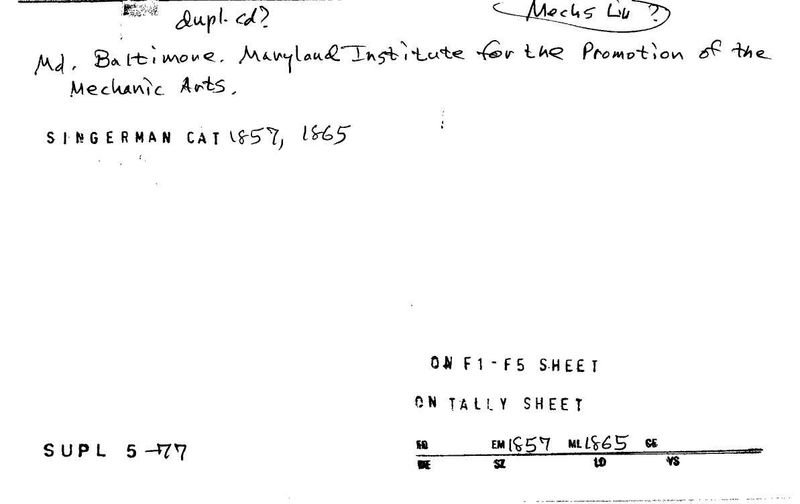 dupl. cd?
Mechs Lib ?
Md. Baltimore. Maryland Institute for the Promotion of the
Mechanic Arts.
SINGERMAN CAT 1857, 1865
ON F1-F5 SHEET
ON TALLY SHEET
SUPL 5-77
EM 1857 ML 1865 CE
SZ LD VS